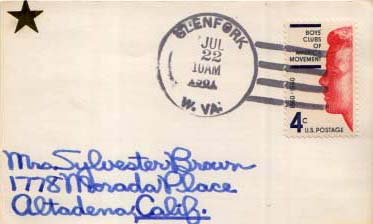 GLENFORK
JUL
22
10AM
W. VA.
BOYS
CLUBS
OF
AMERICA
MOVEMENT
1860-1960
4c
U.S. POSTAGE
Mrs. Sylvester Brown
1778 Morada Place
Altadena, Calif.